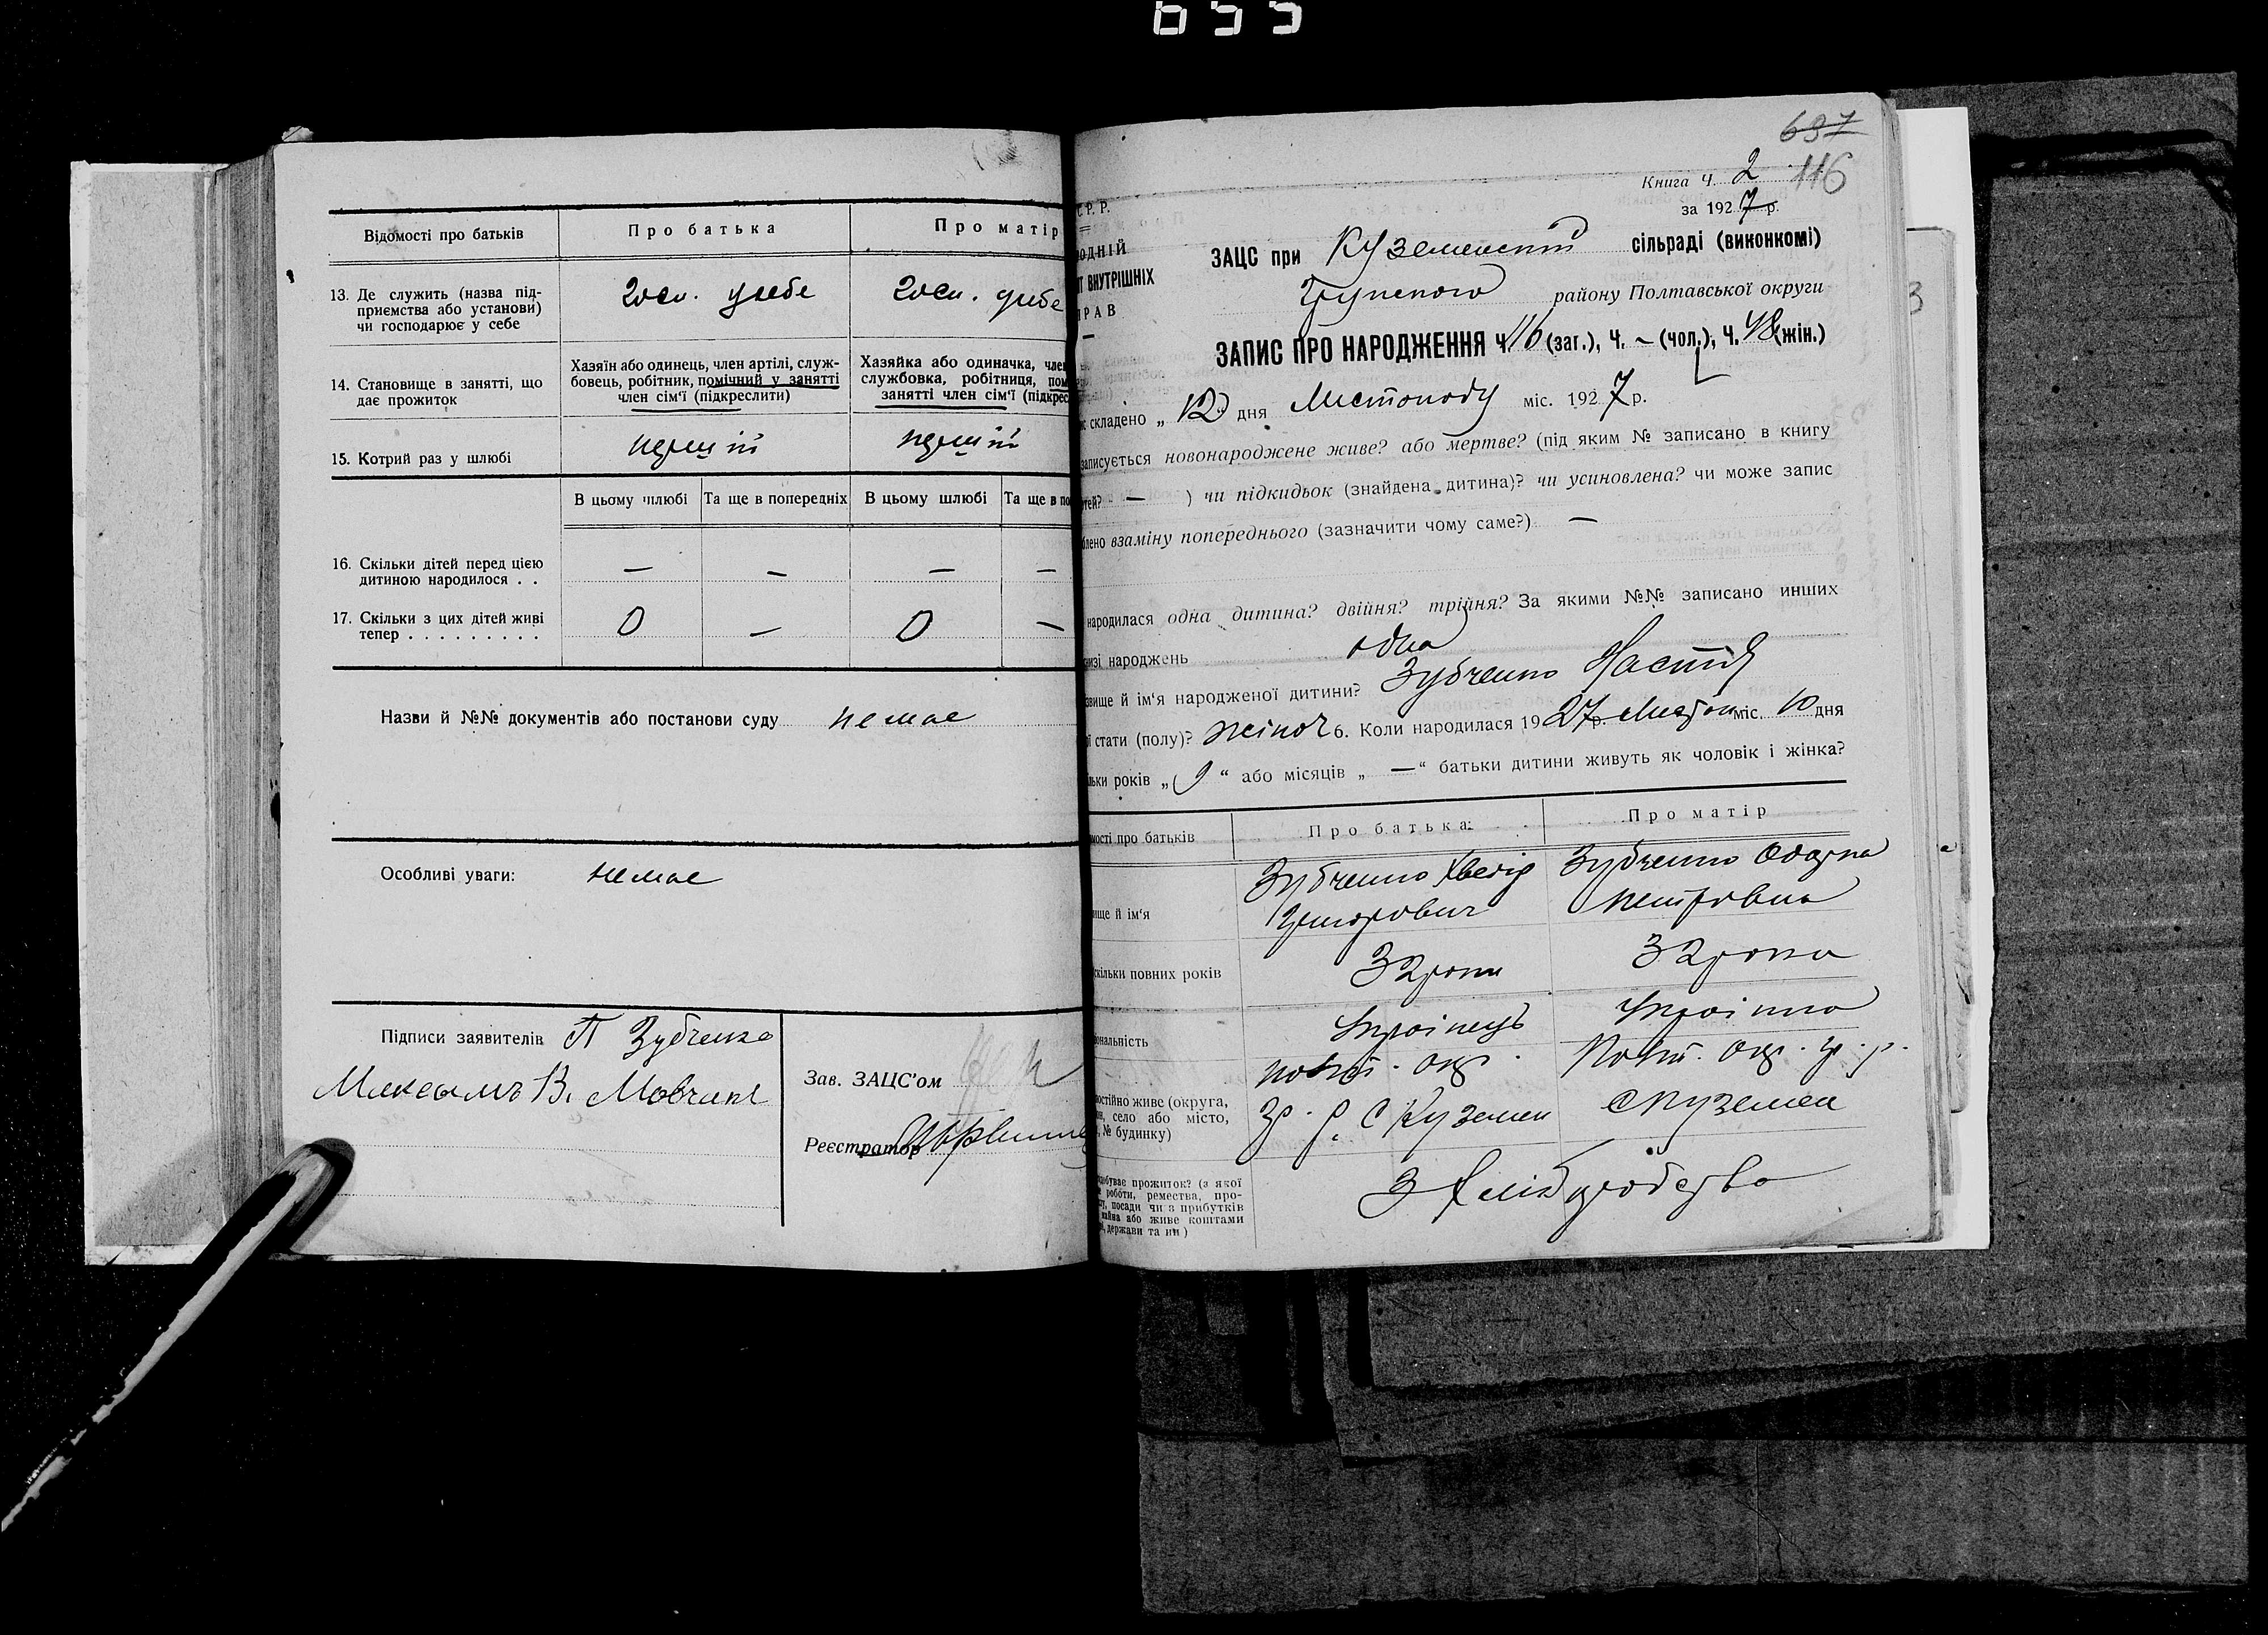 655
Відомості про батьків
Про батька
Про матір
13. Де служить (назва під-
приємства або установи)
чи господарює у себе
госп. у себе
госп. у себе
14. Становище в занятті, що
дає прожиток
Хазяїн або одинець, член артілі, служ-
бовець, робітник, помічний у занятті
член сім'ї (підкреслити)
Хазяйка або одиначка, член
службовка, робітниця, пом
занятті член сім'ї (підкрес
15. Котрий раз у шлюбі
перший
перший
В цьому шлюбі
Та ще в попередніх
В цьому шлюбі
Та ще в по
16. Скільки дітей перед цією
дитиною народилося . .
— — — —
17. Скільки з цих дітей живі
тепер . . . . . . . . .
0 — 0 —
Назви й №№ документів або постанови суду немає
Особливі уваги: немає
Підписи заявителів П Зубченко
Максимъ В. Мовчан
Зав. ЗАЦС'ом
Реєстратор
697
116
Книга Ч. 2
за 1927 р.
С. Р. Р.
ОДНІЙ
Т ВНУТРІШНІХ
ПРАВ
ЗАЦС при Куземенській сільраді (виконкомі)
Грунського району Полтавської округи
ЗАПИС ПРО НАРОДЖЕННЯ Ч. 116 (заг.), Ч. ~ (чол.), Ч. 48 (жін.)
с складено „12" дня Листопаду міс. 1927 р.
записується новонароджене живе? або мертве? (під яким № записано в книгу
тей? — ) чи підкидьок (знайдена дитина)? чи усиновлена? чи може запис
блено взаміну попереднього (зазначити чому саме?) —
народилася одна дитина? двійня? трійня? За якими №№ записано инших
низі народжень одна
звище й ім'я народженої дитини? Зубченко Настя
ї стати (полу)? жіноч 6. Коли народилася 1927 р. Листоп міс. 10 дня
льки років „9" або місяців „—" батьки дитини живуть як чоловік і жінка?
мості про батьків
Про батька
Про матір
вище й ім'я
Зубченко Хведір
Григорович
Зубченко Одарка
Петровна
скільки повних років
32 роки
32 роки
ональність
Українець
Українка
постійно живе (округа,
он, село або місто,
, № будинку)
Полт. окр.
Гр. р. С Куземен
Полт. окр. гр. р.
С Куземен
здобуває прожиток? (з якої
е роботи, ремества, про-
у, посади чи з прибутків
майна або живе коштами
, держави та ин)
З Хліборобства